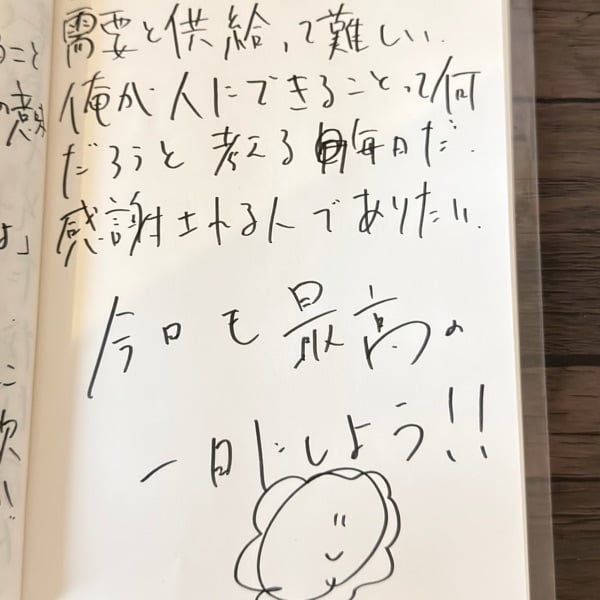 需要と供給って難しい.
俺が人にできることって何
だろうと考える毎日だ.
感謝される人でありたい.
今日も最高の
一日にしよう!!
ること
の意味
よ」